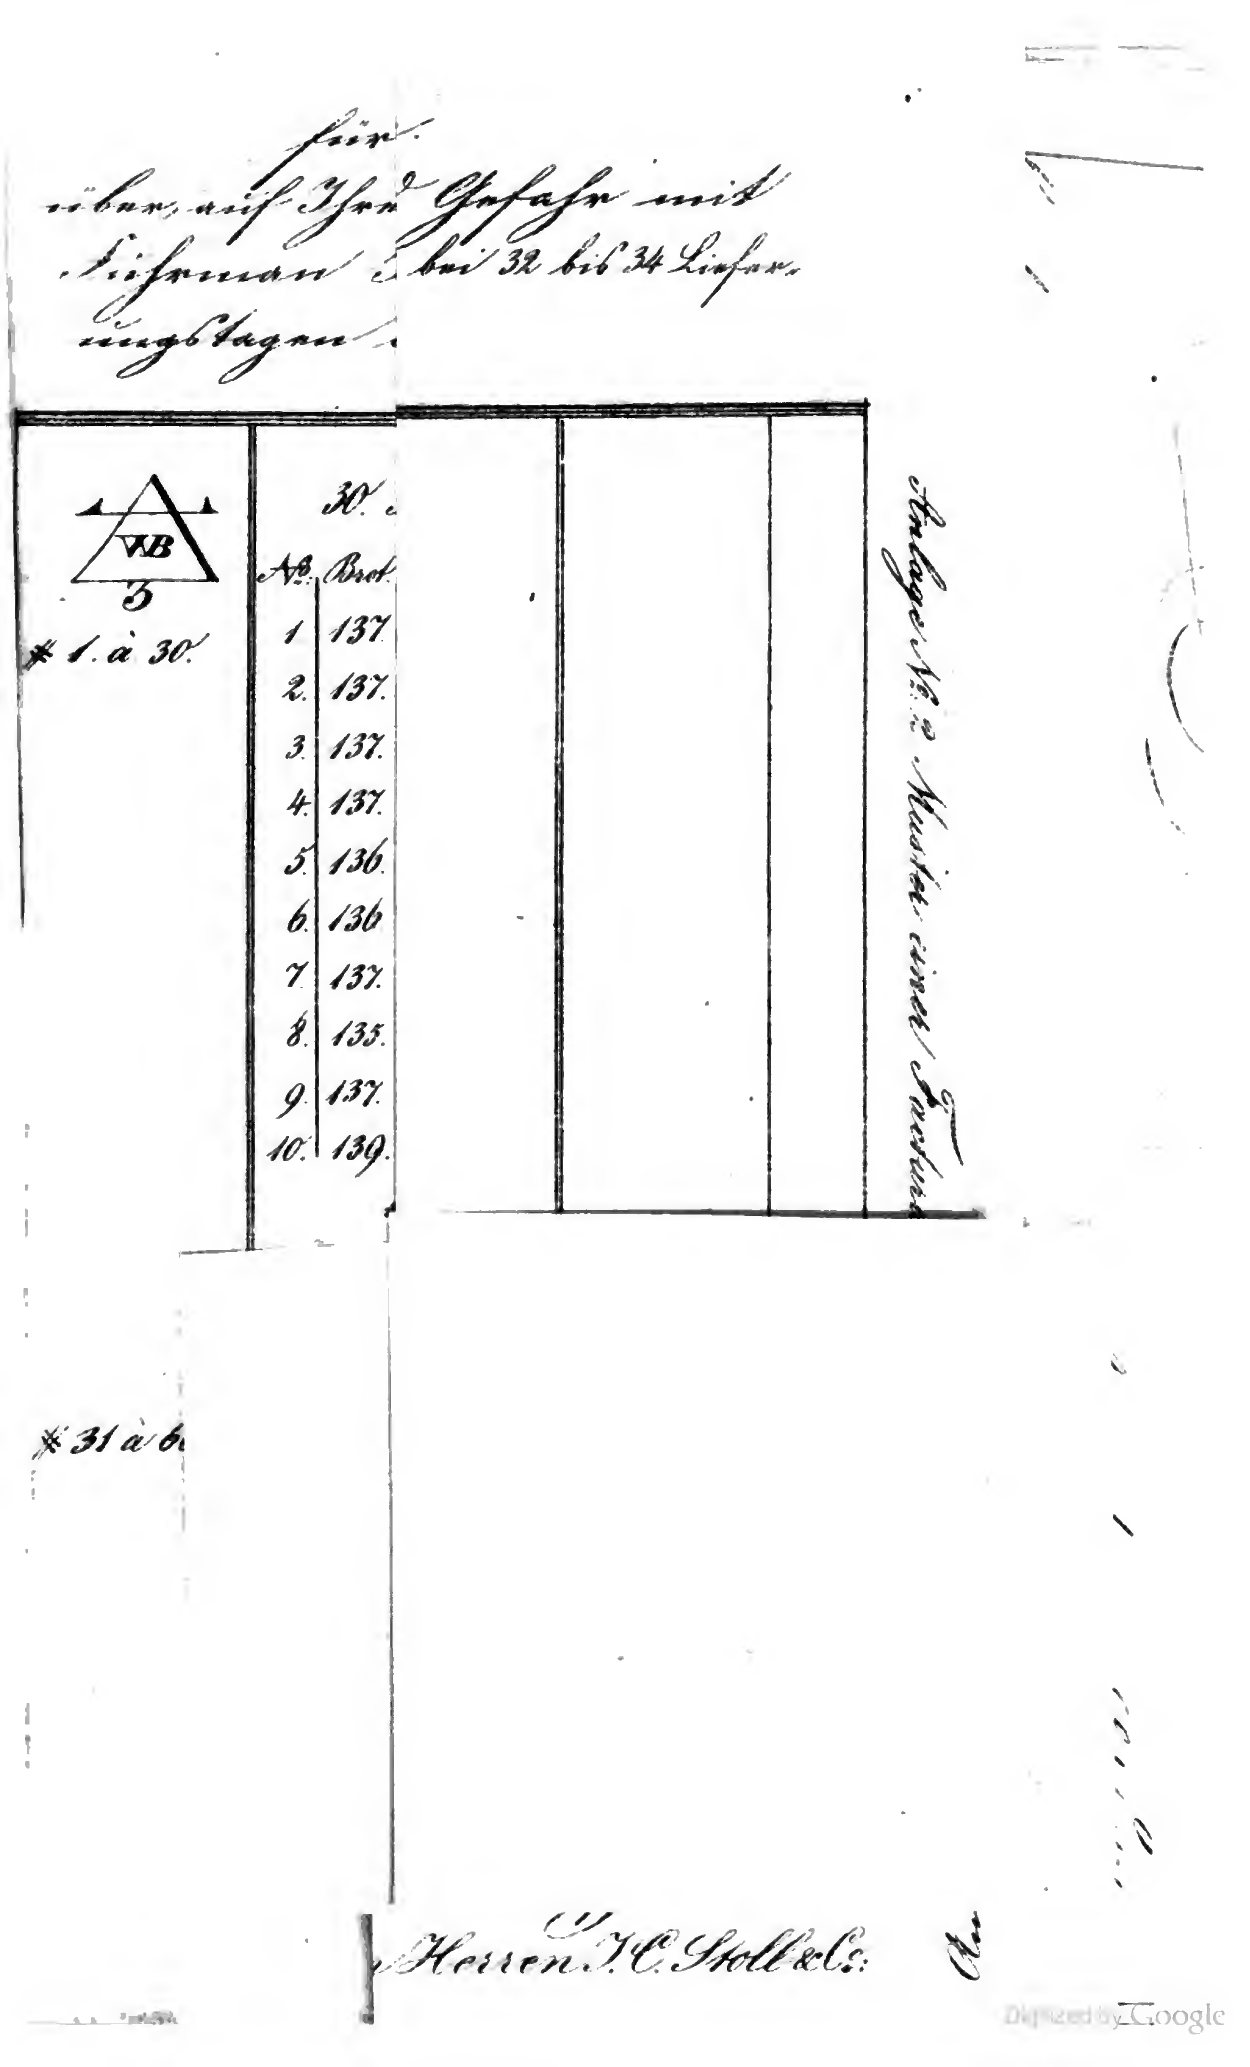 für
über, auf Ihre Gefahr mit
Fuhrman bei 32 bis 34 Liefer-
ungstagen
30.
WB
3
# 1. à 30.
No. Brot.
1 137
2. 137.
3. 137.
4. 137.
5. 136.
6. 136
7 137.
8. 135.
9. 137.
10. 139.
Anlage No. 2 Muster einer Factura
# 31 à
Herren J. C. Stoll & Co:
An
Digitized by Google